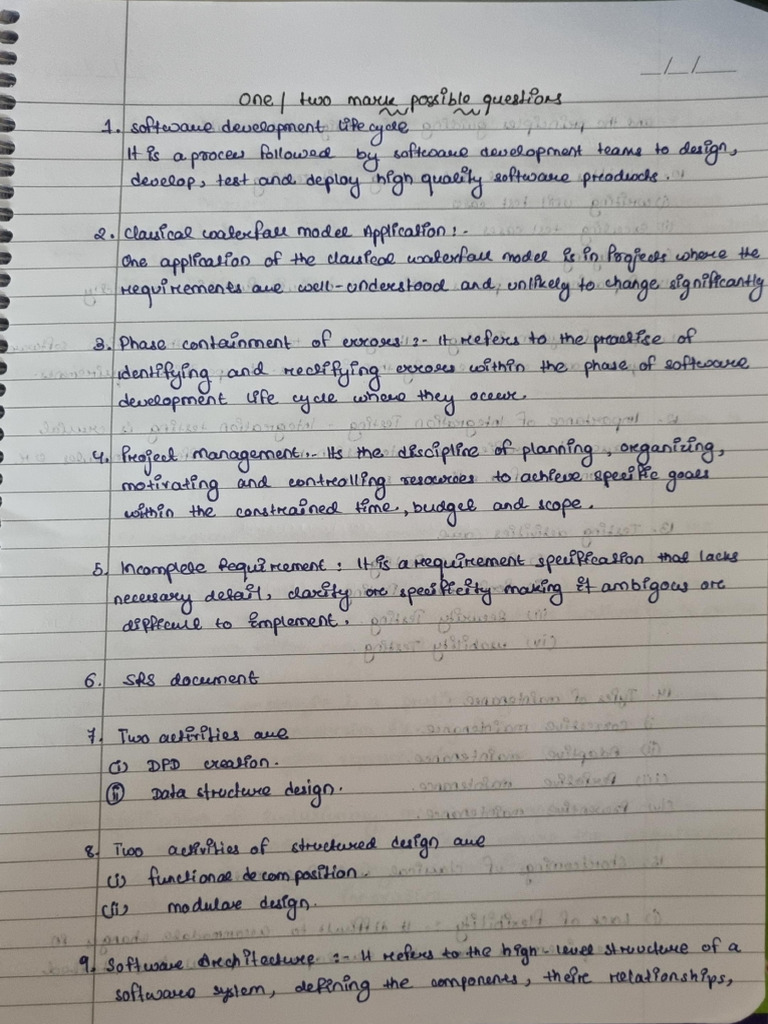 __/__/__
One / two mark possible questions
1. software development life cycle
It is a process followed by software development teams to design,
develop, test and deploy high quality software products.
2. Classical waterfall model Application :-
One application of the classical waterfall model is in Projects where the
requirements are well-understood and unlikely to change significantly
3. Phase containment of errors :- It refers to the practise of
identifying and rectifying errors within the phase of software
development life cycle where they occur.
4. Project management :- Its the discipline of planning, organizing,
motivating and controlling resources to achieve specific goals
within the constrained time, budget and scope.
5. Incomplete Requirement : It is a requirement specification that lacks
necessary detail, clarity or specificity making it ambigous or
difficult to Emplement.
6. SRS document
7. Two activities are
(i) DPD creation.
(ii) Data structure design.
8. Two activities of structured design are
(i) functional decomposition.
(ii) modular design.
9. Software Architecture :- It refers to the high-level structure of a
software system, defining the components, their relationships,